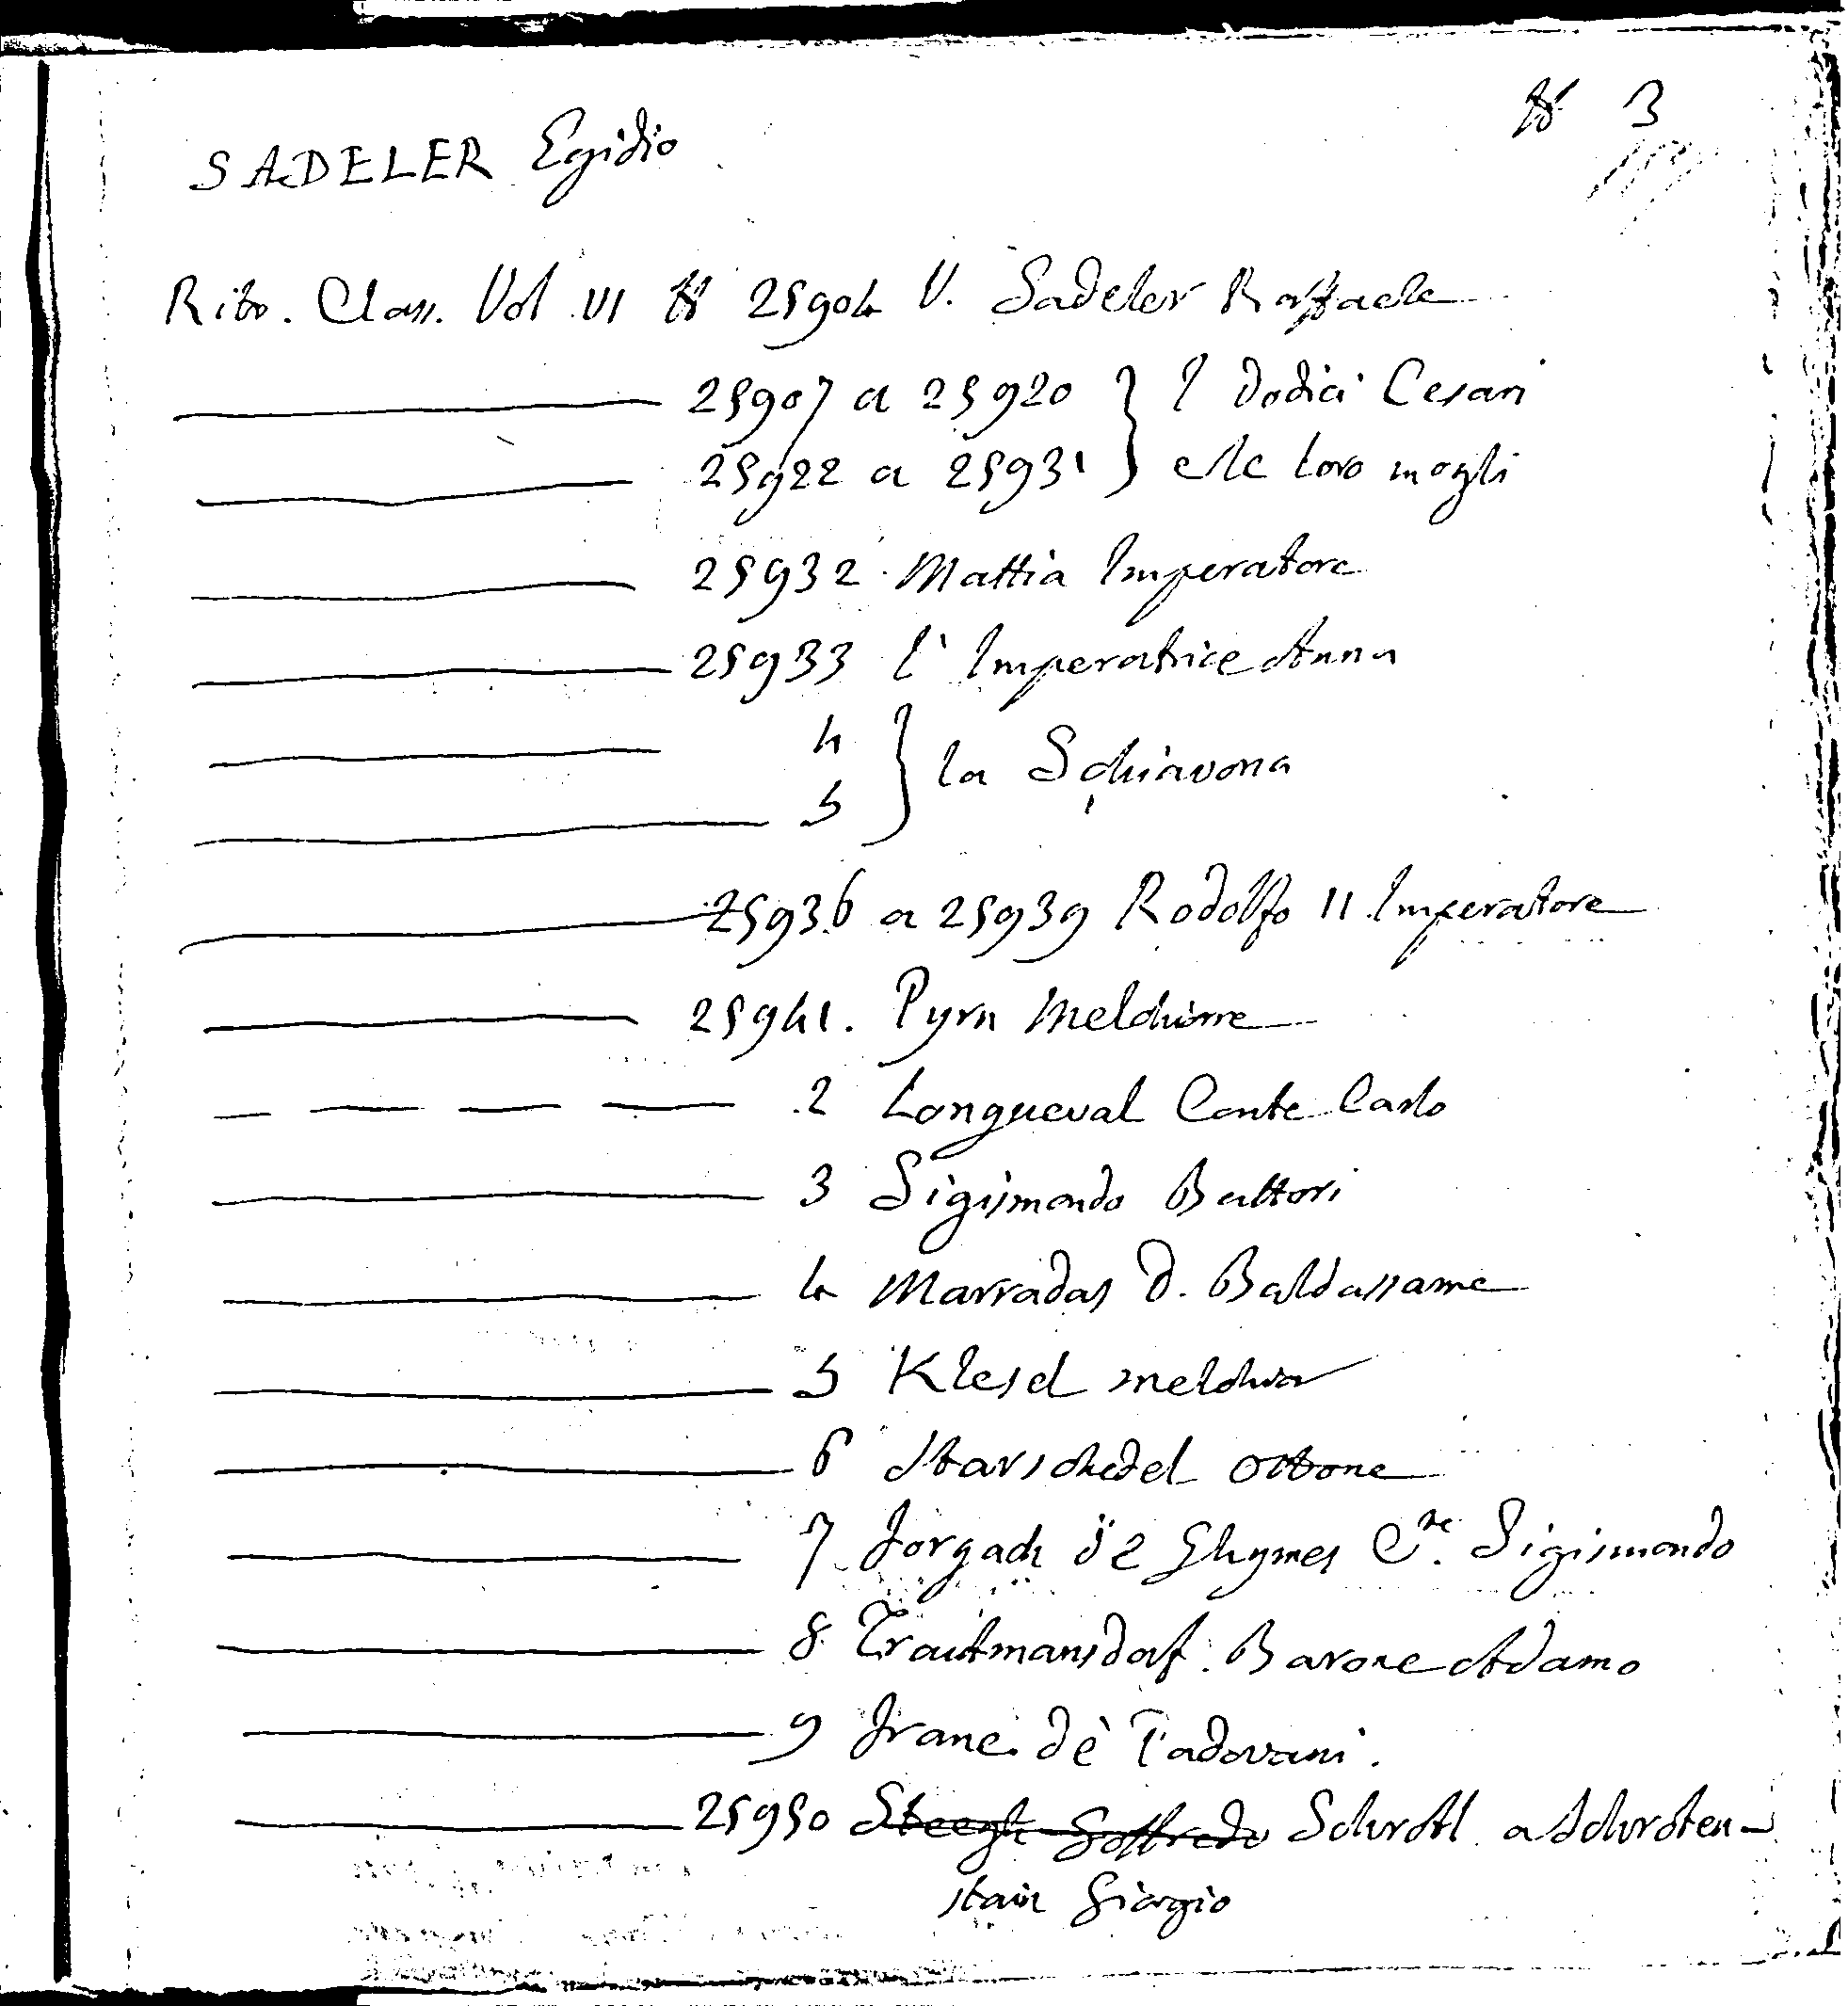 N 3
SADELER Egidio
Ritr. Class. Vol VI N 25904 V. Sadeler Raffaele
25907 a 25920 } I Dodici Cesari
25922 a 25931 } e le loro mogli
25932 Mattia Imperatore
25933 l' Imperatrice Anna
4 } la Schiavona
5
25936 a 25939 Rodolfo II Imperatore
25941. Pyrn Melchiorre
2 Longueval Conte Carlo
3 Sigismondo Battori
4 Marradas D. Baldassarre
5 Klesel Melchior
6 Starschedel Ottone
7 Forgach de Ghymes Sigismondo
8 Trautmansdorf Barone Adamo
9 Franc. de Padovani.
25950 Steegh Goffredo Schrötl a Schroten-
stain Giorgio